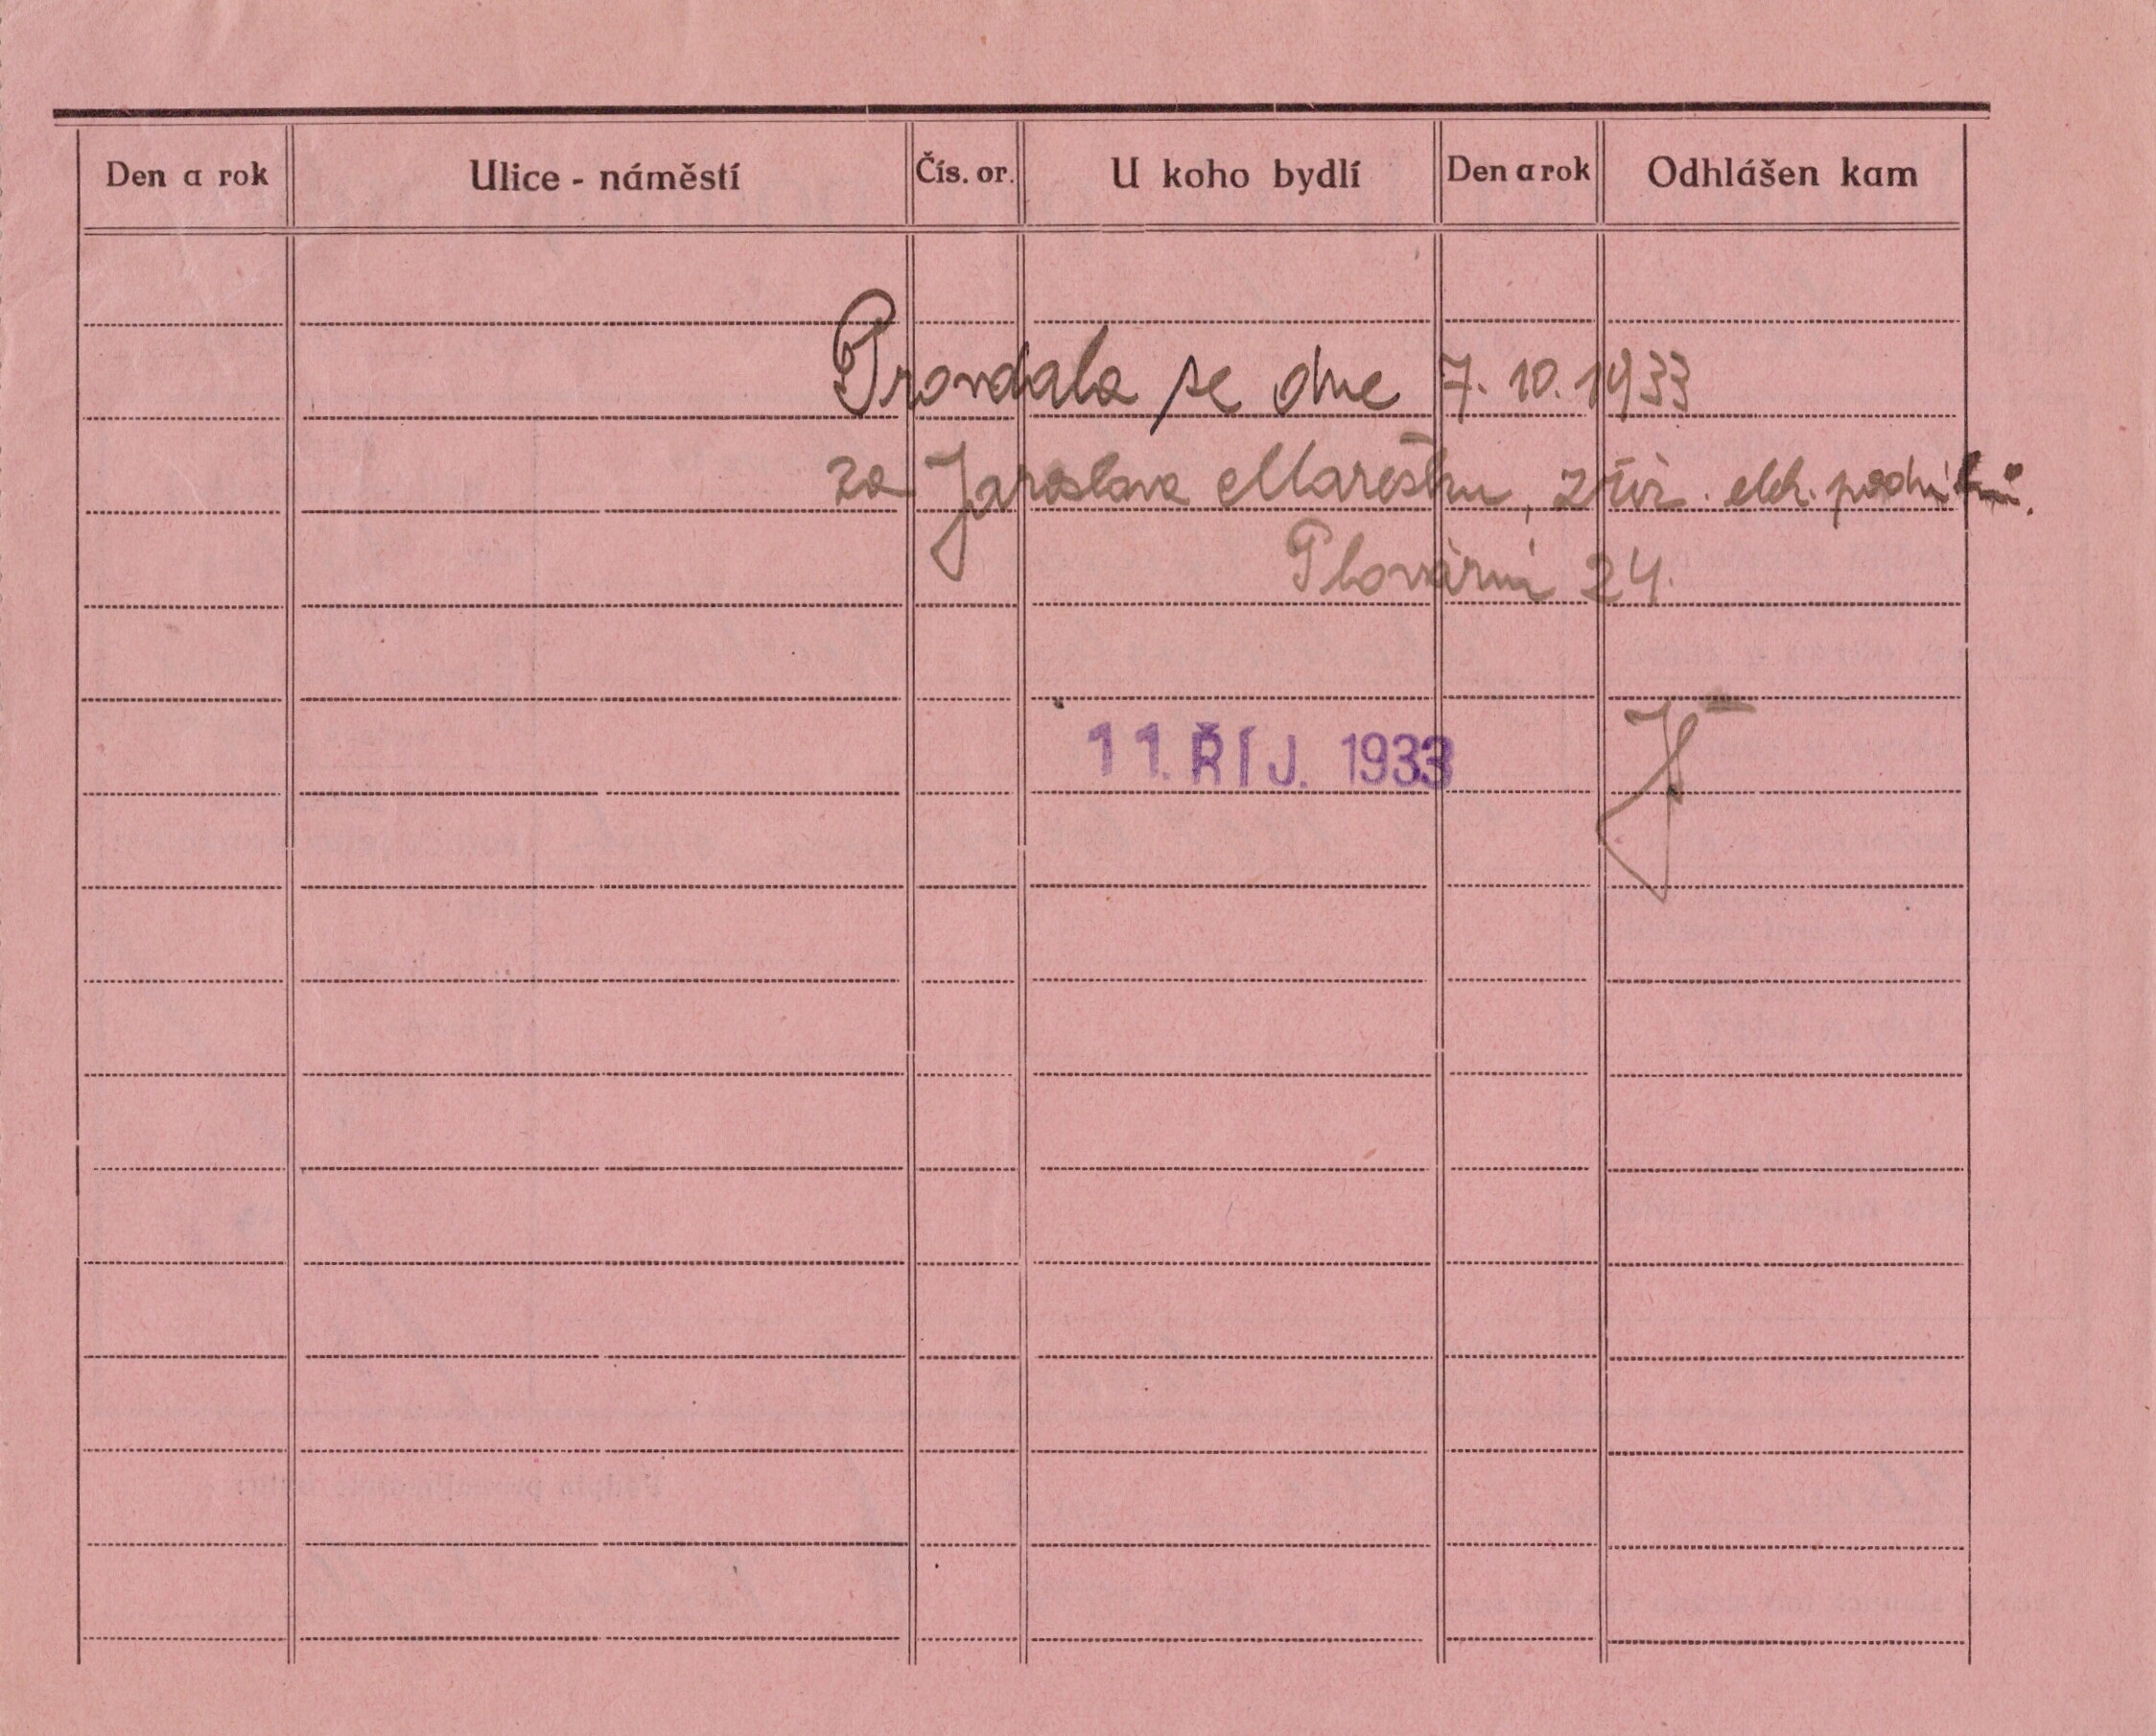 Den a rok Ulice - náměstí Čís. or. U koho bydlí Den a rok Odhlášen kam
Provdala se dne 7. 10. 1933
za Jaroslava Marešku, zříz. elek. podniků.
Plovární 24.
11. ŘÍJ. 1933